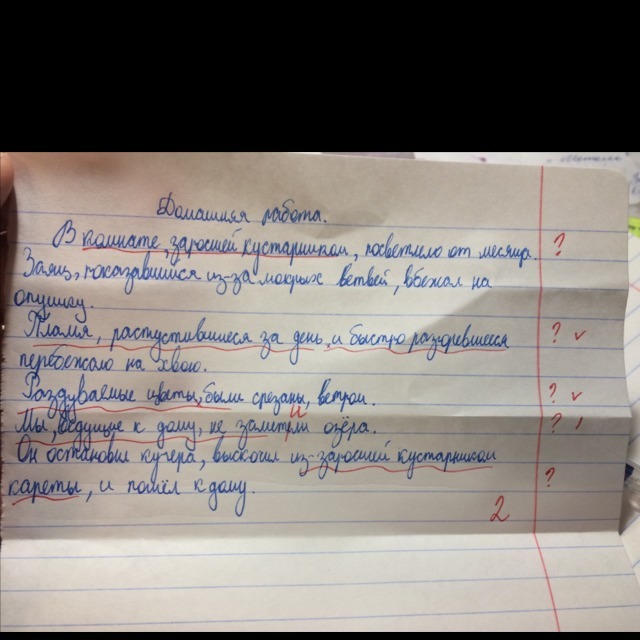 Домашняя работа.
В комнате, заросшей кустарником, посветлело от месяца. ?
Заяц, показавшийся из-за мокрых ветвей, вбежал на
опушку.
Пламя, распустившиеся за день, и быстро разгоревшееся ? ✓
перебежало на хвою.
Раздуваемые цветы, были срезаны, ветром. ? ✓
Мы, ведущие к дому, не заметили озёра. ? /
Он остановил кучера, выскочил из-заросшей кустарником
кареты, и пошёл к дому. ?
2